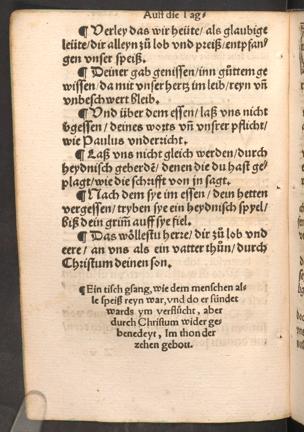 Auff die Tag⸗
¶ Verley das wir heüte/ als glaubige
leüte/dir alleyn zů lob vnd preiß/entpfan⸗
gen vnser speiß.
¶ Deiner gab genissen/inn gůttem ge
wissen/da mit vnser hertz im leib/reyn vñ
vnbeschwert bleib.
¶ Vnd über dem essen/ laß vns nicht
vgessen/deines worts vñ vnsrer pflicht/
wie Paulus vnderricht.
¶ Laß vns nicht gleich werden/durch
heydnisch geberdē/ denen die du hast ge⸗
plagt/wie die schrifft von jn sagt.
¶ Nach dem sye im essen/ dein hetten
vergessen/tryben sye ein heydnisch spyel/
biß dein grim̄ auff sye fiel.
¶ Das wöllestu herre/dir zů lob vnd
eere/ an vns als ein vatter thůn/durch
Christum deinen son.
¶ Ein tisch gsang, wie dem menschen al⸗
le speiß reyn war, vnd do er sündet
wards ym verflůcht, aber
durch Christum wider ges
benedeyt, Im thon der
zehen gebott.